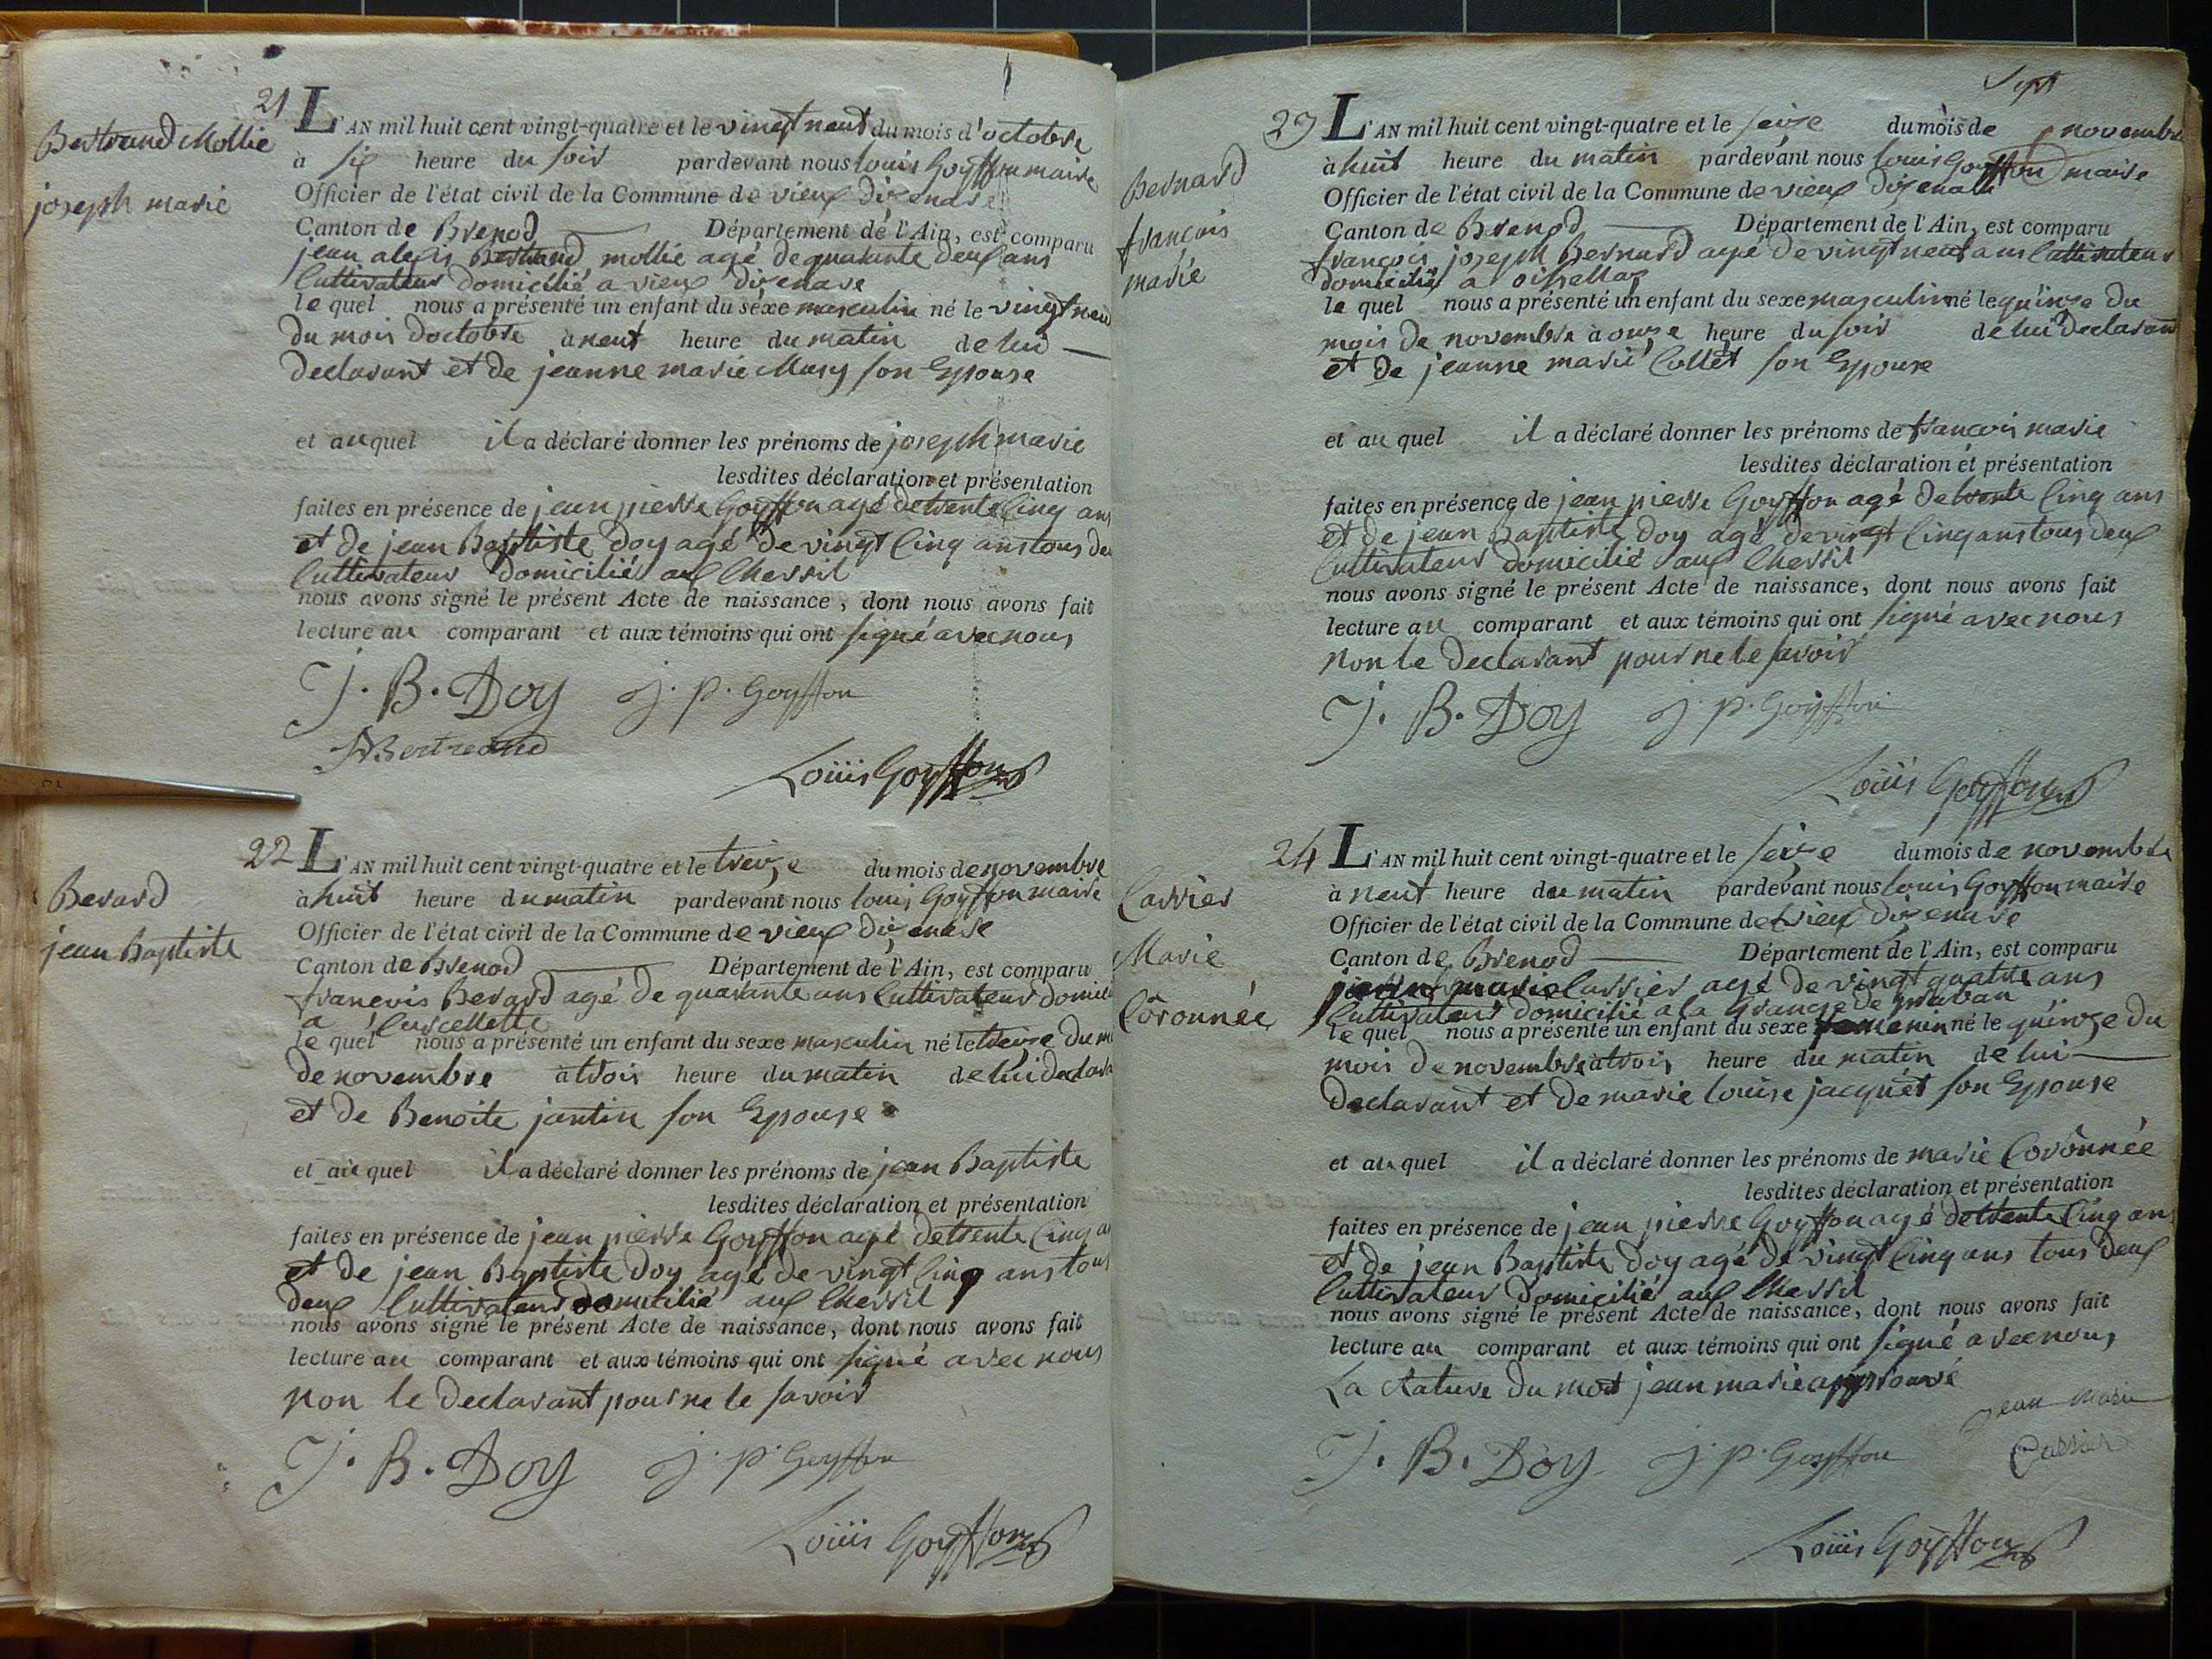 21
Bertrand Mollie
joseph marie
L'AN mil huit cent vingt-quatre et le vingt neuf du mois d'octobre
à six heure du soir pardevant nous louis Goyffon maire
Officier de l'état civil de la Commune de vieux dizenave
Canton de Brenod Département de l'Ain, est comparu
jean alexis Bertrand mollie agé de quarante deux ans
Cultivateur domicilié a vieux dizenave
le quel nous a présenté un enfant du séxe masculin né le vingt neuf
du mois doctobre à neuf heure du matin de lui
declarant et de jeanne marie Mary son Epouse
et au quel il a déclaré donner les prénoms de joseph marie
lesdites déclaration et présentation
faites en présence de jean pierre Goyffon agé de trente Cinq ans
et de jean Baptiste doy agé de vingt Cinq ans tous de
Cultivateur domicilié aux Chevril
nous avons signé le présent Acte de naissance, dont nous avons fait
lecture au comparant et aux témoins qui ont signé avec nous
J. B. Doy j. p. Goyffon
Bertrand
Loüis Goyffon
22
Berard
jean Baptiste
L'AN mil huit cent vingt-quatre et le treize du mois de novembre
à huit heure du matin pardevant nous louis Goyffon maire
Officier de l'état civil de la Commune de vieux dizenave
Canton de Brenod Département de l'Ain, est comparu
francois Berard agé de quarante ans Cultivateur domicilié
a
le quel nous a présenté un enfant du sexe masculin né le treize du m
de novembre à trois heure du matin de lui declara
et de Benoite jantin son Epouse
et au quel il a déclaré donner les prénoms de jean Baptiste
lesdites déclaration et présentation
faites en présence de jean pierre Goyffon agé de trente Cinq a
et de jean Baptiste doy agé de vingt Cinq ans tous
deux Cultivateurs domicilié aux Chevril
nous avons signé le présent Acte de naissance, dont nous avons fait
lecture au comparant et aux témoins qui ont signé avec nous
non le declarant pour ne le savoir
J. B. Doy j. p. Goyffon
Loüis Goyffon
Sept
23
Bernard
francois
marie
L'AN mil huit cent vingt-quatre et le seize du mois de novembre
à huit heure du matin pardevant nous louis Goyffon maire
Officier de l'état civil de la Commune de vieux dizenave
Canton de Brenod Département de l'Ain, est comparu
francois joseph Bernard agé de vingt neuf ans Cultivateur
domicilié a oisellaz
le quel nous a présenté un enfant du sexe masculin né le quinze du
mois de novembre à onze heure du soir de lui declarant
et de jeanne marie Collet son Epouse
et au quel il a déclaré donner les prénoms de francois marie
lesdites déclaration et présentation
faites en présence de jean pierre Goyffon agé de trente Cinq ans
et de jean Baptiste doy agé de vingt Cinq ans tous deux
Cultivateur domicilié aux Chevril
nous avons signé le présent Acte de naissance, dont nous avons fait
lecture au comparant et aux témoins qui ont signé avec nous
non le declarant pour ne le savoir
J. B. Doy j. p. Goyffon
Loüis Goyffon
24
Carrier
Marie
Côronnée
L'AN mil huit cent vingt-quatre et le seize du mois de novembre
à neuf heure du matin pardevant nous louis Goyffon maire
Officier de l'état civil de la Commune de vieux dizenave
Canton de Brenod Département de l'Ain, est comparu
jean marie Carrier agé de vingt quatre ans
Cultivateur domicilié a la Grange de
le quel nous a présenté un enfant du sexe femenin né le quinze du
mois de novembre à trois heure du matin de lui
declarant et de marie louise jacquet son Epouse
et au quel il a déclaré donner les prénoms de marie Corônnée
lesdites déclaration et présentation
faites en présence de jean pierre Goyffon agé de trente Cinq ans
et de jean Baptiste doy agé de vingt Cinq ans tous deux
Cultivateur domicilié aux Chevril
nous avons signé le présent Acte de naissance, dont nous avons fait
lecture au comparant et aux témoins qui ont signé avec nous
La Rature du mot jean marie approuvé
jean marie
Carrier
J. B. Doy j. p. Goyffon
Loüis Goyffon